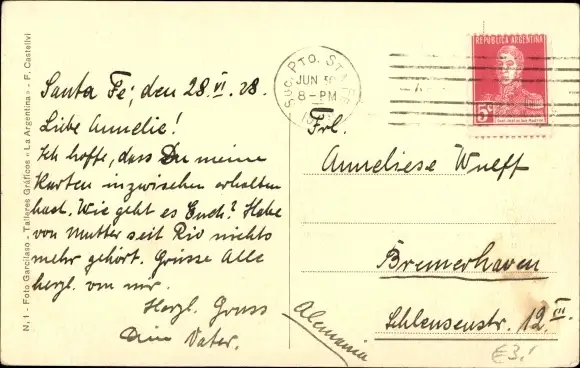 N. 1 - Foto Garcilaso - Talleres Gráficos «La Argentina» - F. Castellvi
Santa Fe, den 28. VI. 28.
Liebe Annelie!
Ich hoffe, dass Du meine
Karten inzwischen erhalten
hast. Wie geht es Euch? Habe
von Mutter seit Rio nichts
mehr gehört. Grüsse Alle
herzl. von mir.
Herzl. Gruss
Dein Vater.
SUC. PTO. STA FE
JUN 30
8 - PM
REPUBLICA ARGENTINA
5c
Frl.
Anneliese Wulff
Bremerhaven
Schleusenstr. 12 III.
Alemania
€3,-